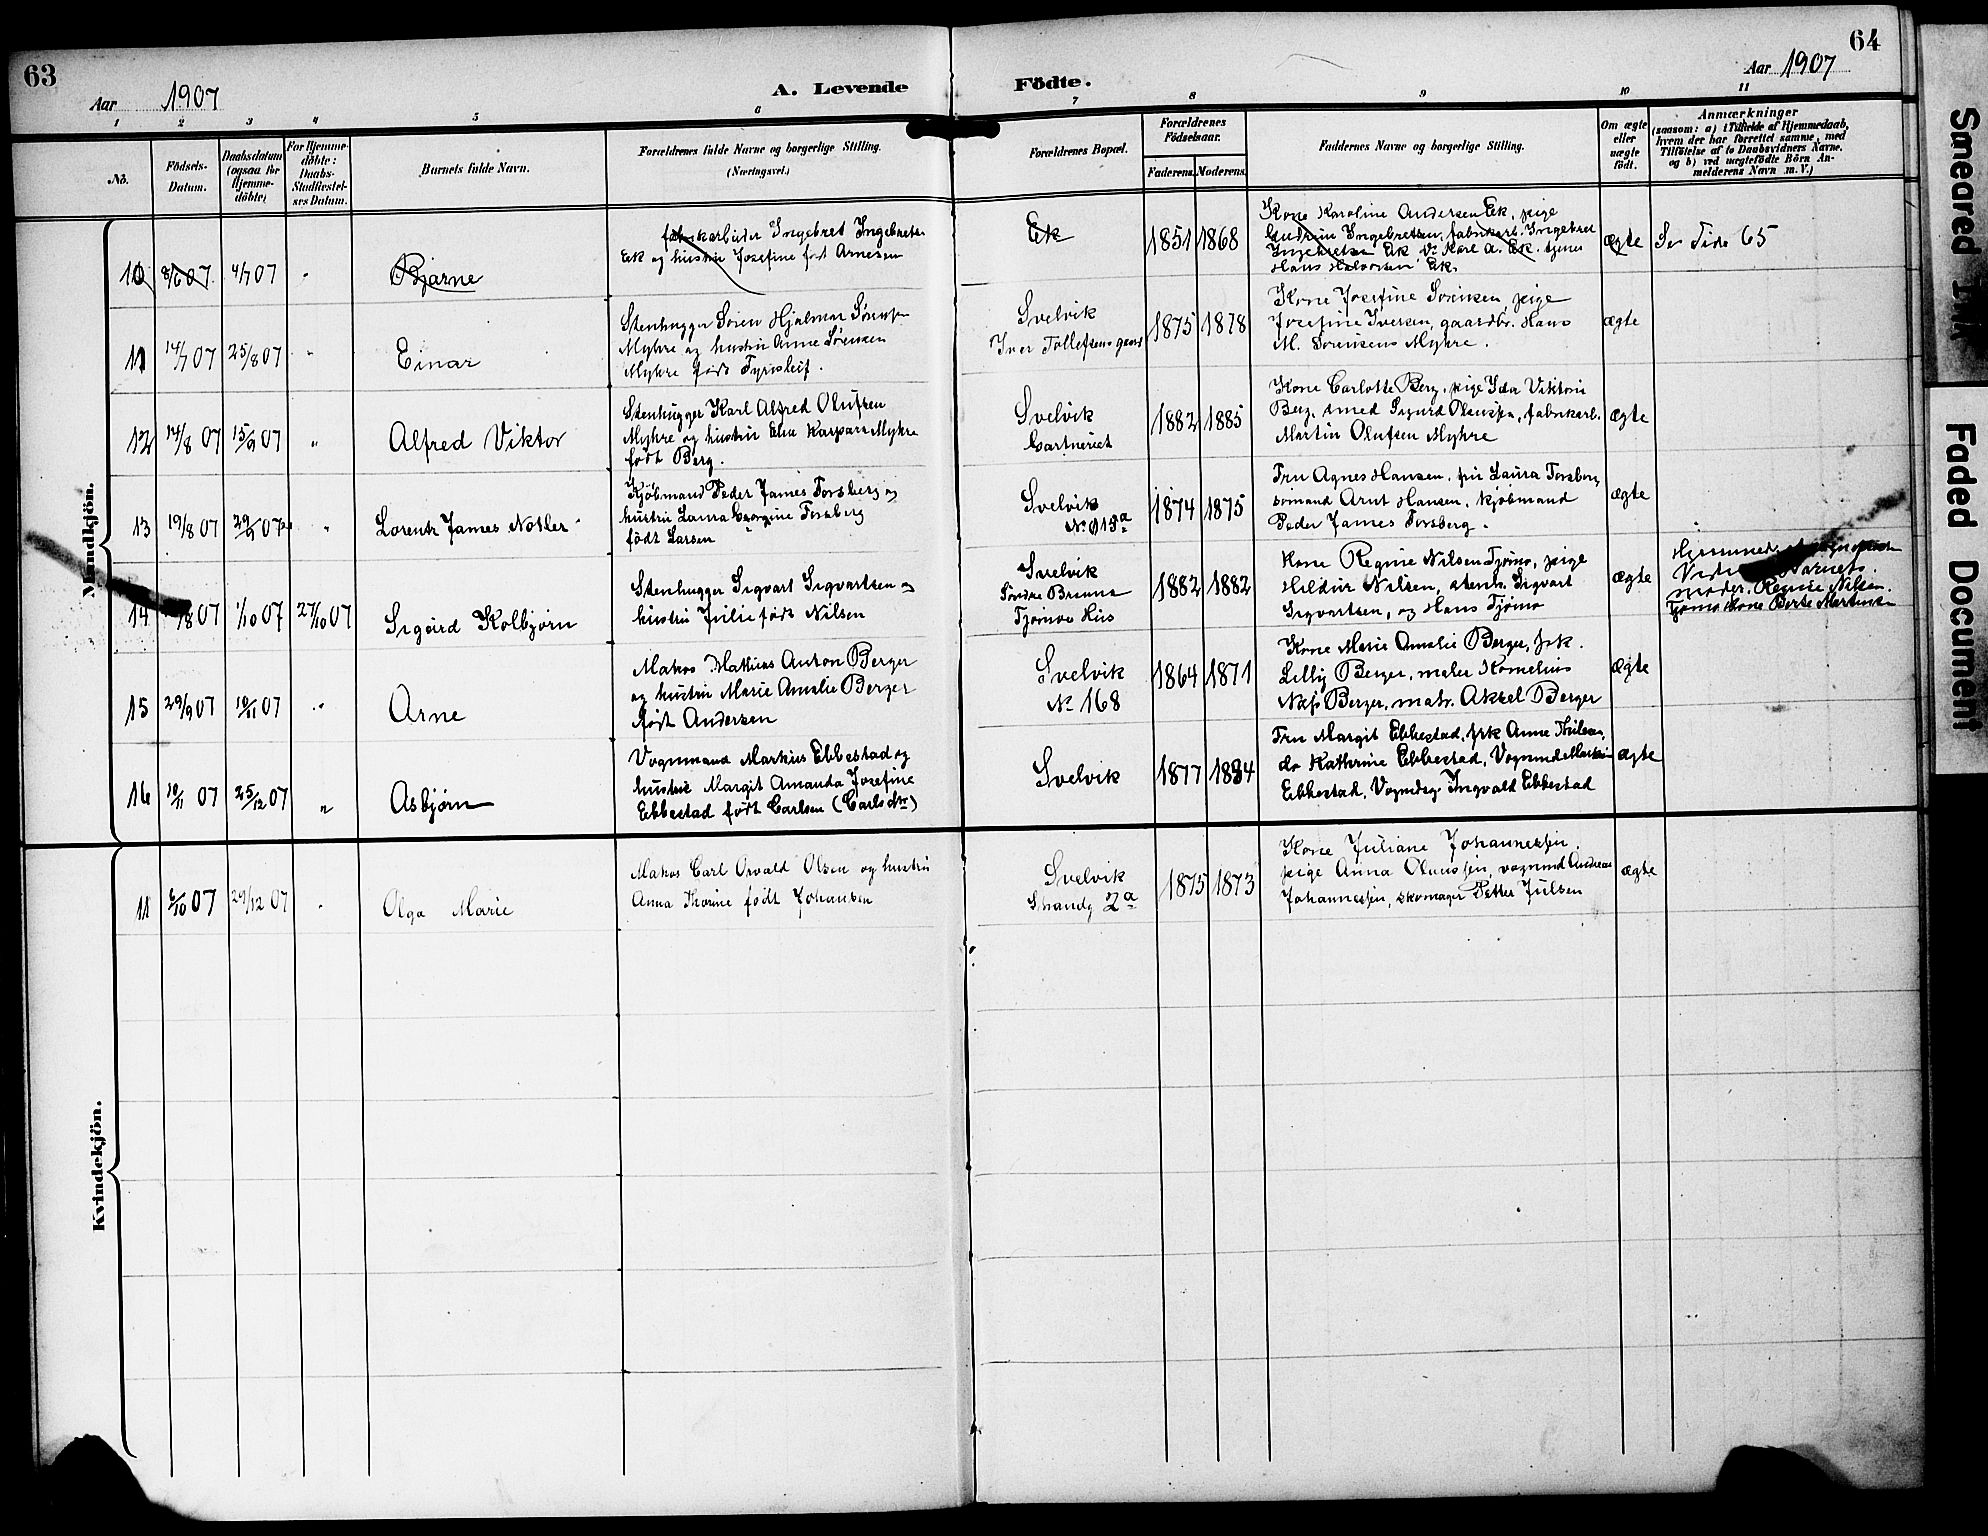 63
64
Aar 1907
A. Levende Födte.
Aar 1907
1 2 3 4 5 6 7 8 9 10 11
No.
Födsels-
Datum.
Daabsdatum
(ogsaa for
Hjemme-
döbte)
For Hjemme-
döbte:
Daabs-
Stadfæstel-
ses Datum.
Barnets fulde Navn.
Forældrenes fulde Navne og borgerlige Stilling.
(Næringsvei.)
Forældrenes Bopæl.
Forældrenes
Födselsaar.
Faderens. Moderens.
Faddernes Navne og borgerlige Stilling.
Om ægte
eller
uægte
födt.
Anmærkninger
(saasom: a) i Tilfælde af Hjemmedaab,
hvem der har forrettet samme, med
Tilföielse af to Daabsvidners Navne,
og b) ved uægtefödte Börn An-
melderens Navn m. V.)
Mandkjön.
10 8/6 07 4/7 07
Bjarne
fabrikarbeider Ingebret Ingebretsen
Eek og hustru Josefine født Arnesen
Ek
1851 1868
Kone Karoline Andersen Ek, pige
Gudrun Ingebretsen, fabrikarb. Ingebret
Ingebretsen Ek Karl A. Ek, tjener
Hans Halvorsen Ek.
ægte
Se Side 65
11 14/7 07 25/8 07 "
Einar
Stenhugger Søren Hjalmar Sørensen
Myhre og hustru Anne Sørensen
Myhre født
Svelvik
Iver Tollefsens gaard
1875 1878
Kone Josefine Sørensen, pige
Josefine Iversen, gaardbr. Hans
M. Sørensens Myhre.
ægte
12 14/8 07 15/9 07 "
Alfred Viktor
Stenhugger Karl Alfred Olufsen
Myhre og hustru Kaspara Myhre
født Berg.
Svelvik
Gartneriet
1882 1885
Kone Carlotte Berg, pige Ida Viktoria
Berg, smed Sigurd Olaussen, fabrikarb.
Martin Olufsen Myhre
ægte
13 19/8 07 29/9 07 "
Lorentz James
Kjøbmand Peder James Forsberg og
hustru Laura Georgine Forsberg
født Larsen
Svelvik
1874 1875
Fru Agnes Hansen, frk Laura Forsberg,
sømand Arnt Hansen, kjøbmand
Peder James Forsberg.
ægte
14 /8 07 1/10 07 27/10 07
Sigurd Kolbjørn
Stenhugger Sigvart Sigvartsen og
hustru Julie født Nilsen
Svelvik
Søndre Brenna
Tjømøe Hus
1882 1882
Kone Regine Nilsen Tjømø, pige
Hildur Nilsen, stenh. Sigvart
Sigvartsen, og Hans Tjømø
ægte
Barnets
moder, Regine Nilsen
Tjømø Kone Berte Martinsen
15 29/9 07 10/11 07 "
Arne
Matros Mathias Anton Berger
og hustru Marie Amalie Berger
født Andersen
Svelvik
No 168
1864 1871
Kone Marie Amalie Berger, frk.
Lilly Berger, maler Kornelius
Berger, matr. Aksel Berger
ægte
16 10/11 07 25/12 07 "
Asbjørn
Vognmand Markus Ebbestad og
hustru Margit Amanda Josefine
Ebbestad født Carlsen (Carlsdtr)
Svelvik
1877 1884
Fru Margit Ebbestad, frk Anne
do Kathrine Ebbestad, Vognmd Markus
Ebbestad, Ingvald Ebbestad
ægte
Kvindekjön.
11 6/10 07 29/12 07
Olga Marie
Matros Carl Osvald Olsen og hustru
Anna Thorine født Johansen
Svelvik
Strandg 2a
1875 1873
Kone Juliane Johannessen,
pige Anna Olaussen, vognmd Andreas
Johannessen, skomager Petter Julsen
ægte
Smeared Ink
Faded Document